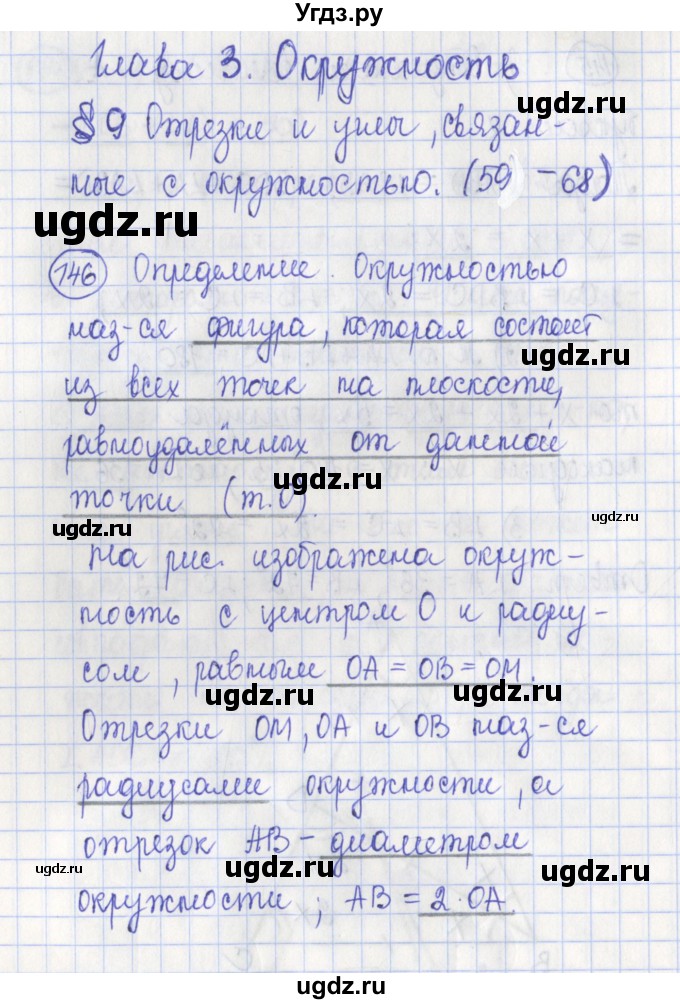 Угдз.ру
Глава 3. Окружность
ugdz.ru
§ 9 Отрезки и углы, связан-
ные с окружностью. (59 - 68)
ugdz.ru ugdz.ru
146 Определение. Окружностью
наз-ся фигура, которая состоит
ugdz.ru
из всех точек на плоскости,
равноудалённых от данной
ugdz.ru
точки (т.О).
ugdz.ru ugdz.ru
На рис. изображена окруж-
ность с центром О и радиу-
ugdz.ru
сом, равным ОА = ОВ = ОМ.
ugdz.ru ugdz.ru
Отрезки ОМ, ОА и ОВ наз-ся
радиусами окружности, а
ugdz.ru
отрезок АВ - диаметром
ugdz.ru ugdz.ru
окружности; АВ = 2·ОА.
ugdz.ru
ugdz.ru